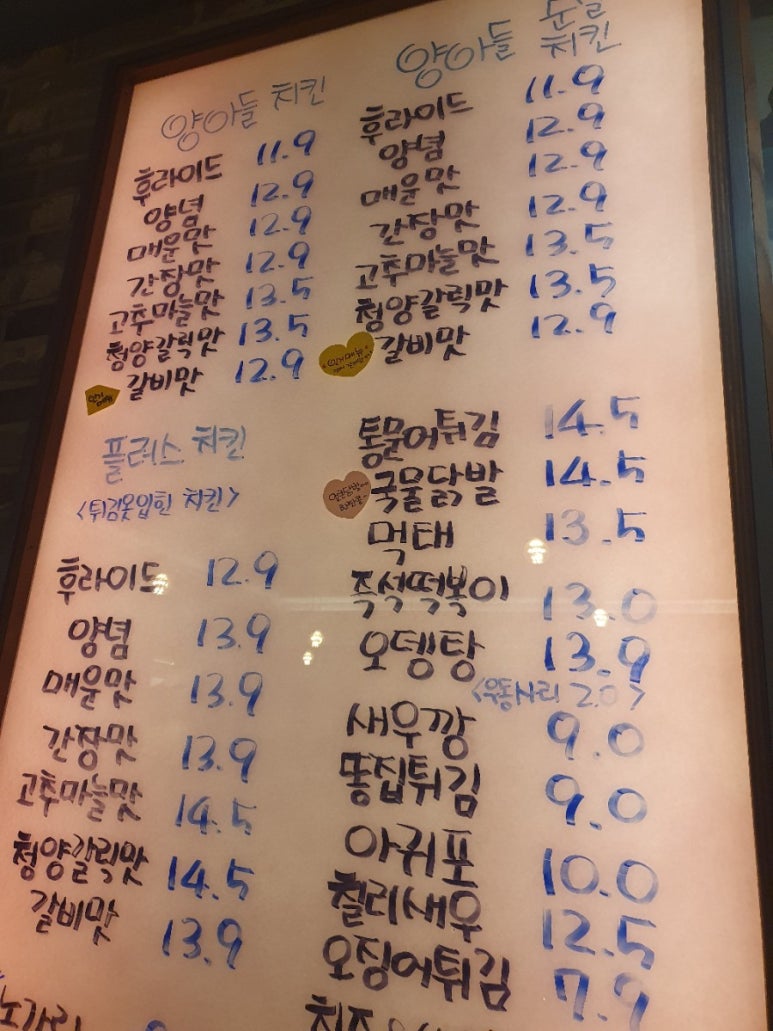 양아들 치킨
후라이드 11.9
양념 12.9
매운맛 12.9
간장맛 12.9
고추마늘맛 13.5
청양갈릭맛 13.5
갈비맛 12.9
인기
메뉴
플러스 치킨
<튀김옷입힌 치킨>
후라이드 12.9
양념 13.9
매운맛 13.9
간장맛 13.9
고추마늘맛 14.5
청양갈릭맛 14.5
갈비맛 13.9
노가리
양아들 순살
치킨
후라이드 11.9
양념 12.9
매운맛 12.9
간장맛 12.9
고추마늘맛 13.5
청양갈릭맛 13.5
갈비맛 12.9
인기메뉴
통문어튀김 14.5
국물닭발 14.5
먹태 13.5
즉석떡볶이 13.0
오뎅탕 13.9
<우동사리 2.0>
새우깡 9.0
똥집튀김 9.0
아귀포 10.0
칠리새우 12.5
오징어튀김 7.9
치즈